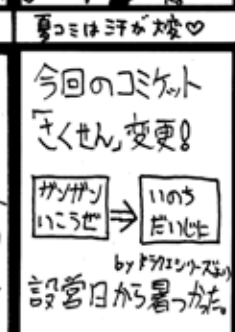 夏コミは汗が大変♡
今回のコミケット
「さくせん」変更!
ガンガン
いこうぜ
⇒
いのち
だいじに
by ドラクエシリーズより
設営日から暑つかた。